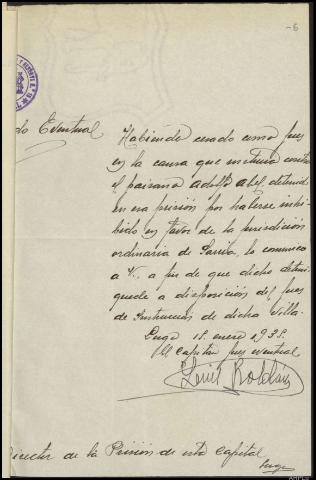 -6
do Eventual
Habiendo cesado como Juez
en la causa que instruia contra
el paisano Adolfo Abel, detenido
en esa prisión por haberse inhi-
bido en favor de la jurisdicion
ordinaria de Sarria, lo comunico
a V. a fin de que dicho deteni-
quede a disposición del Juez
de Instrucción de dicha Villa.
Lugo 18 enero 1938.
El Capitán Juez eventual
Luis Roldán
Director de la Prisión de esta Capital
Lugo